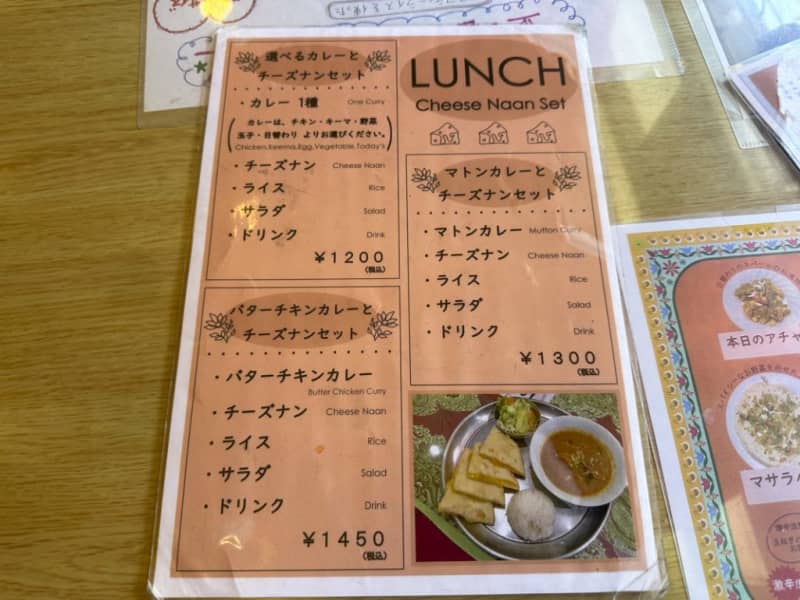 選べるカレーと
チーズナンセット
・カレー 1種 One Curry
カレーは、チキン・キーマ・野菜
玉子・日替わり よりお選びください。
Chicken,Keema,Egg,Vegetable,Today's
・チーズナン Cheese Naan
・ライス Rice
・サラダ Salad
・ドリンク Drink
¥1200
(税込)
バターチキンカレーと
チーズナンセット
・バターチキンカレー
Butter Chicken Curry
・チーズナン Cheese Naan
・ライス Rice
・サラダ Salad
・ドリンク Drink
¥1450
(税込)
LUNCH
Cheese Naan Set
マトンカレーと
チーズナンセット
・マトンカレー Mutton Curry
・チーズナン Cheese Naan
・ライス Rice
・サラダ Salad
・ドリンク Drink
¥1300
(税込)
本日のアチャ
マサラパ
激辛